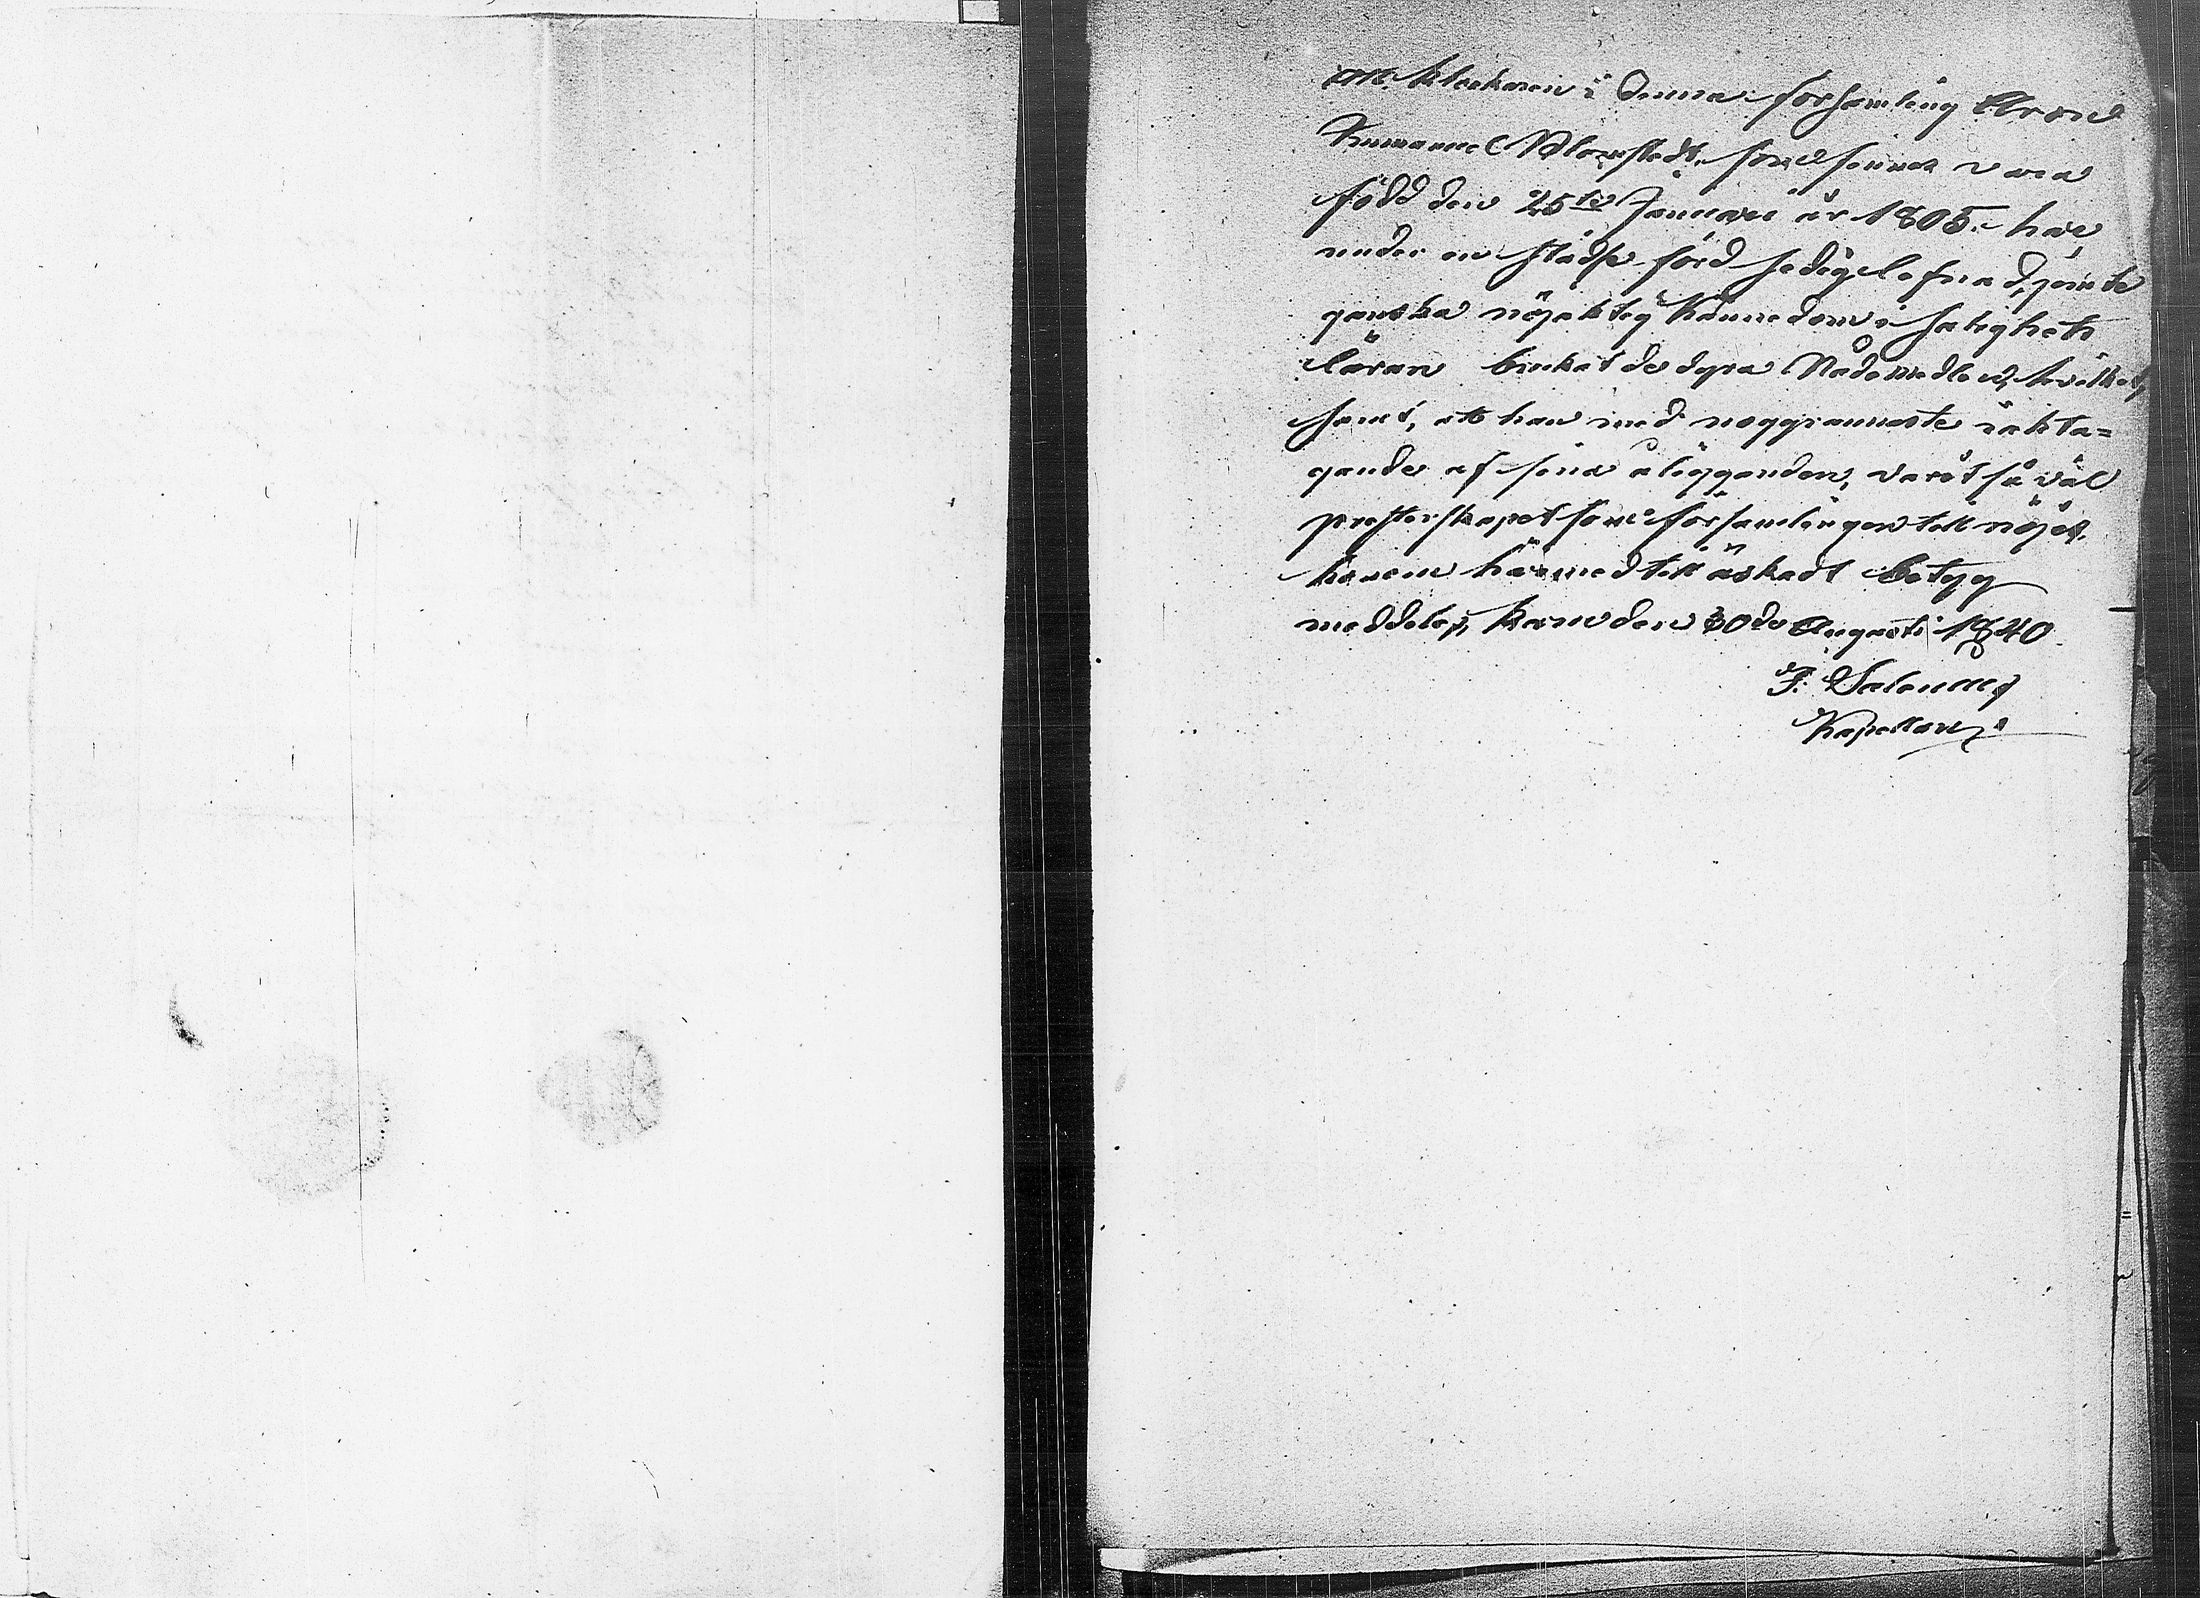 att klockaren i denna församling Arvid
Emanuel Blomstedt, som finnes vara
född den 25te Januari år 1805. har
under en städse förd sedig lefnad, jemte
ganska nöjaktig kännedom i salighets
läran brukat de dyra Nådemedlen, hvilket,
samt, att han med noggrannaste iakta=
gande af sina åligganden, varit så väl
presterskapet som församlingen till nöjes,
honom härmed till äskadt betyg
meddelas, den 30de Augusti 1840.
F. Salenius
Kapellan